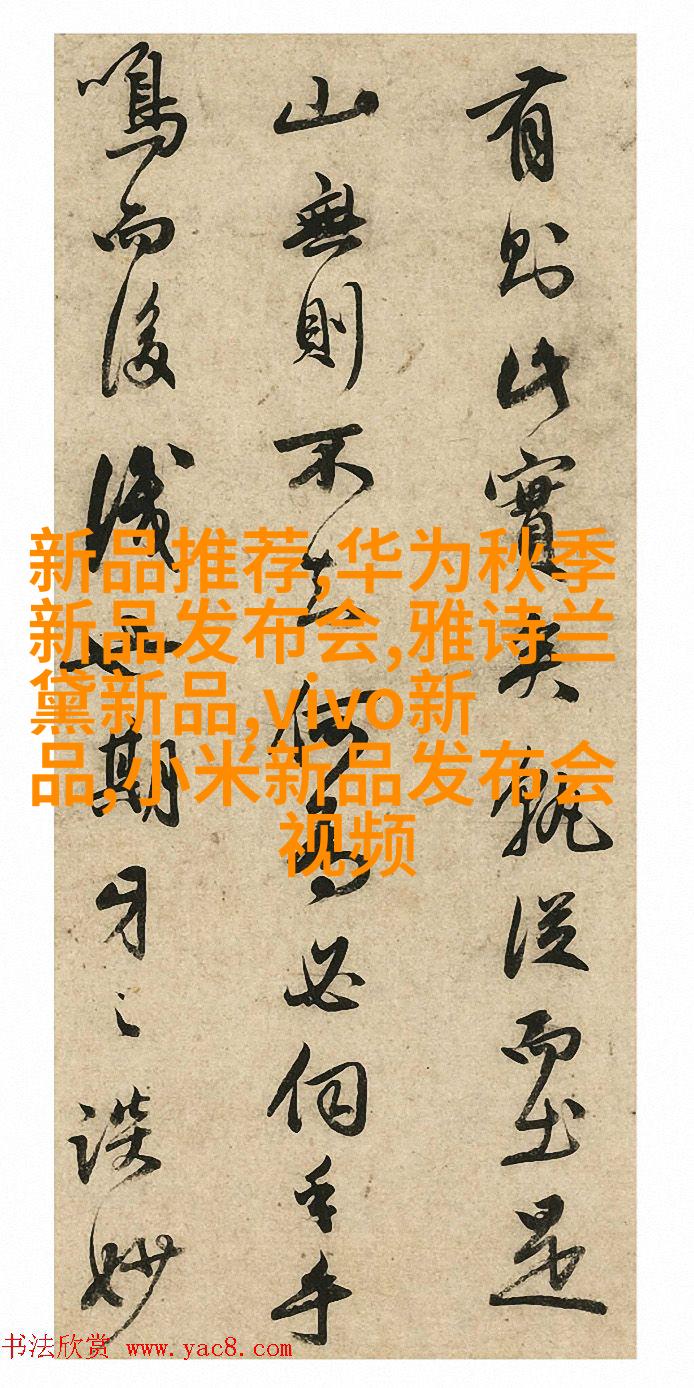 有則此實矣孰從而出是
山無則不何為必手乎
鳴而後識期牙談妙
新品推荐,华为秋季
新品发布会,雅诗兰
黛新品,vivo新
品,小米新品发布会
视频
书法欣赏 www.yac8.com